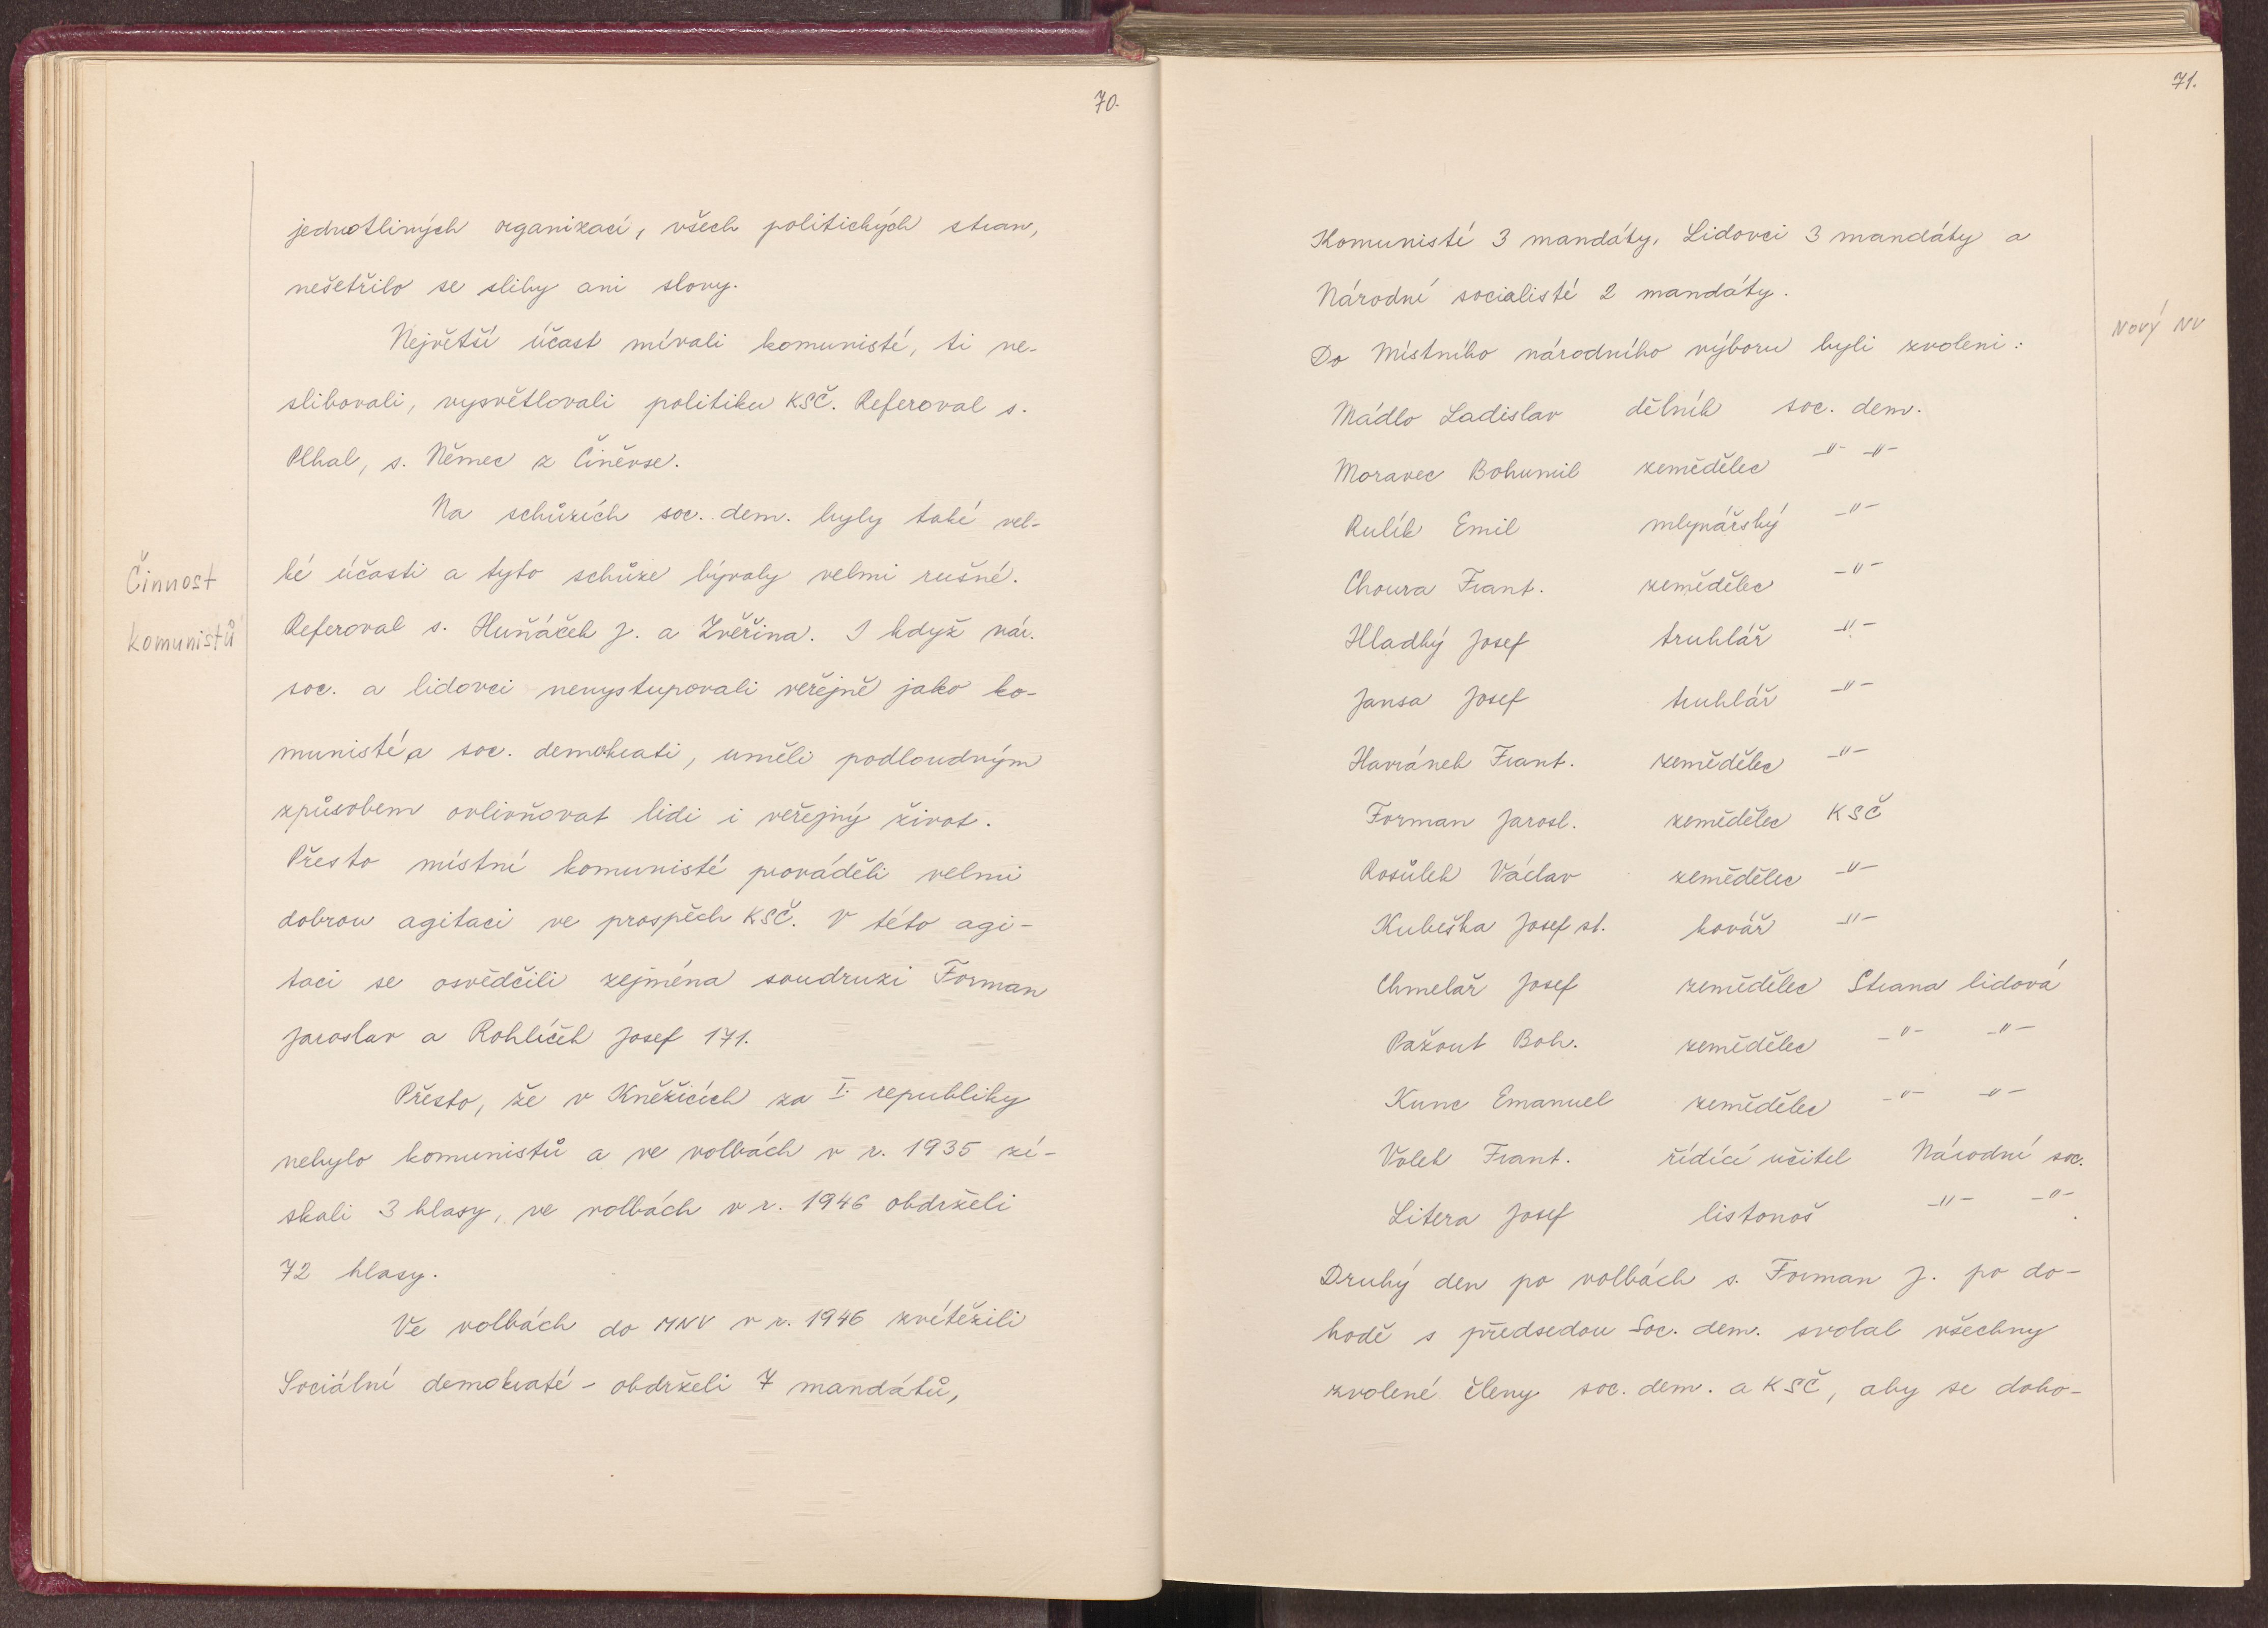 70.
jednotlivých organizací, všech politických stran,
nešetřilo se sliby ani slovy.
Největší účast mívali komunisté, ti ne-
slibovali, vysvětlovali politiku KSČ. Referoval s.
Plhal, s. Němec z Činěvse.
Na schůzích soc. dem. byly také vel-
ké účasti a tyto schůze bývaly velmi rušné.
Činnost
komunistů
Referoval s. Huňáček J. a Zvěřina. I když nár.
soc. a lidovci nevystupovali veřejně jako ko-
munisté a soc. demokrati, uměli podloudným
způsobem ovlivňovat lidi i veřejný život.
Přesto místní komunisté prováděli velmi
dobrou agitaci ve prospěch KSČ. V této agi-
taci se osvědčili zejména soudruzi Forman
Jaroslav a Rohlíček Josef 171.
Přesto, že v Kněžicích za I. republiky
nebylo komunistů a ve volbách v r. 1935 zí-
skali 3 hlasy, ve volbách v r. 1946 obdrželi
72 hlasy.
Ve volbách do MNV v r. 1946 zvítězili
Sociální demokraté - obdrželi 7 mandátů,
71.
Komunisté 3 mandáty, Lidovci 3 mandáty a
Národní socialisté 2 mandáty.
Nový NV
Do Místního národního výboru byli zvoleni:
Mádlo Ladislav dělník soc. dem.
Moravec Bohumil zemědělec -"- -"-
Rulík Emil mlynářský -"-
Choura Frant. zemědělec -"-
Hladký Josef truhlář -"-
Jansa Josef truhlář -"-
Havránek Frant. zemědělec -"-
Forman Jarosl. zemědělec KSČ
Rosůlek Václav zemědělec -"-
Kubeška Josef st. kovář -"-
Chmelař Josef zemědělec Strana lidová
Pažout Boh. zemědělec -"- -"-
Kunc Emanuel zemědělec -"- -"-
Volek Frant. řídící učitel Národní soc.
Litera Josef listonoš -"- -"-
Druhý den po volbách s. Forman J. po do-
hodě s předsedou Soc. dem. svolal všechny
zvolené členy soc. dem. a KSČ, aby se doho-